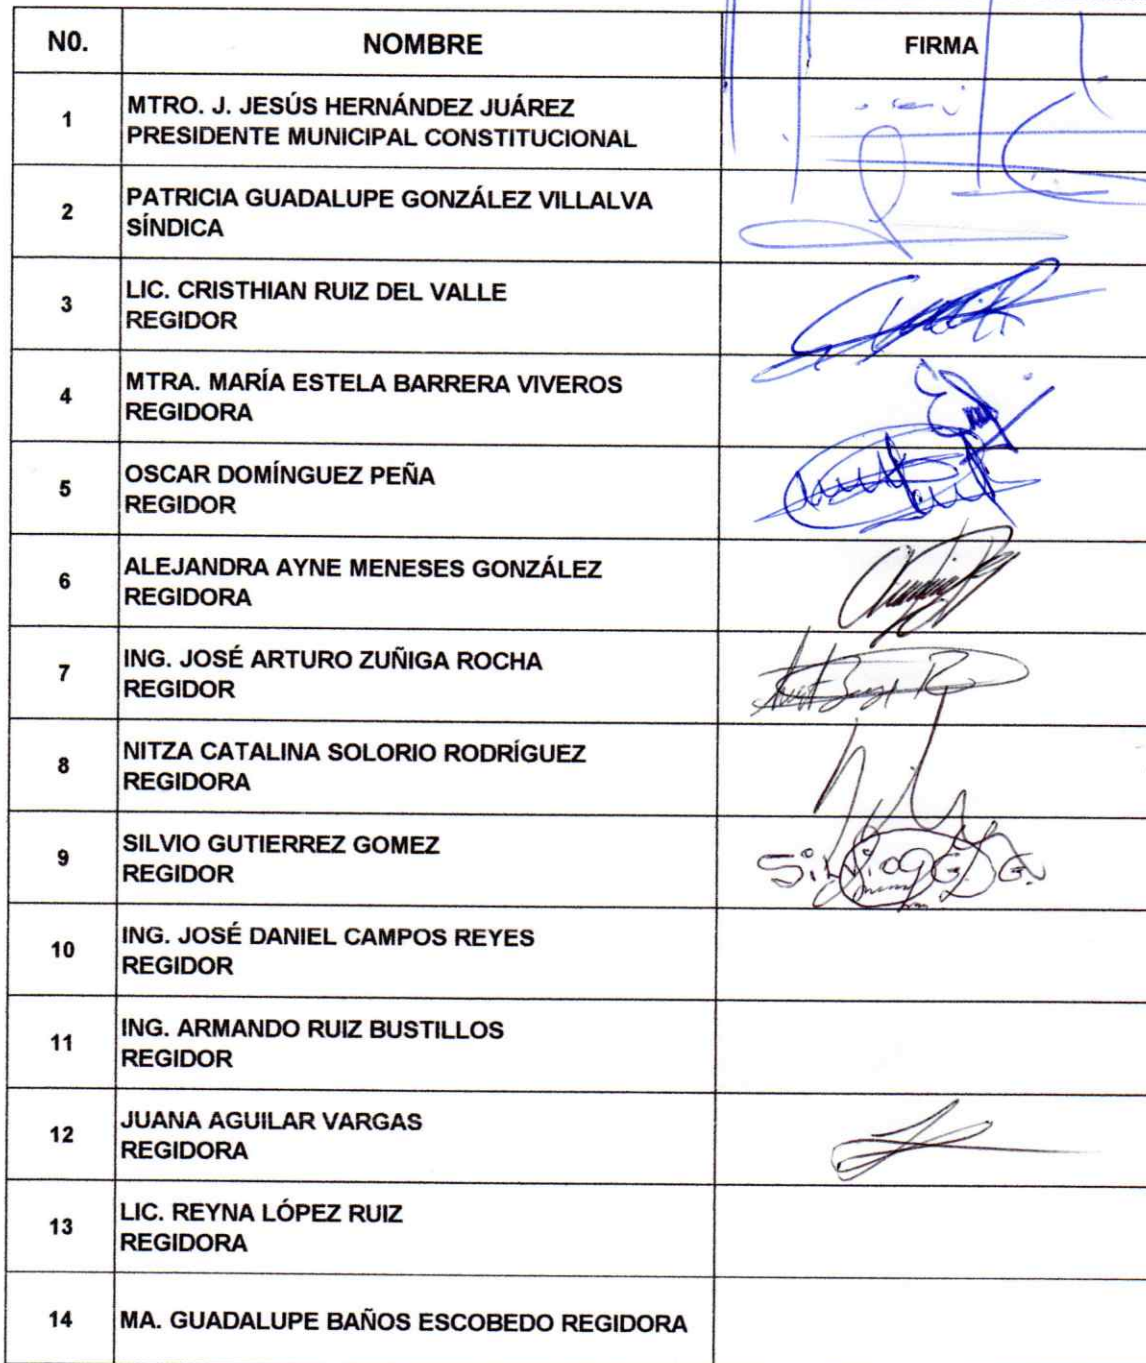 N0. NOMBRE FIRMA
1 MTRO. J. JESÚS HERNÁNDEZ JUÁREZ
PRESIDENTE MUNICIPAL CONSTITUCIONAL
2 PATRICIA GUADALUPE GONZÁLEZ VILLALVA
SÍNDICA
3 LIC. CRISTHIAN RUIZ DEL VALLE
REGIDOR
4 MTRA. MARÍA ESTELA BARRERA VIVEROS
REGIDORA
5 OSCAR DOMÍNGUEZ PEÑA
REGIDOR
6 ALEJANDRA AYNE MENESES GONZÁLEZ
REGIDORA
7 ING. JOSÉ ARTURO ZUÑIGA ROCHA
REGIDOR
8 NITZA CATALINA SOLORIO RODRÍGUEZ
REGIDORA
9 SILVIO GUTIERREZ GOMEZ
REGIDOR
10 ING. JOSÉ DANIEL CAMPOS REYES
REGIDOR
11 ING. ARMANDO RUIZ BUSTILLOS
REGIDOR
12 JUANA AGUILAR VARGAS
REGIDORA
13 LIC. REYNA LÓPEZ RUIZ
REGIDORA
14 MA. GUADALUPE BAÑOS ESCOBEDO REGIDORA